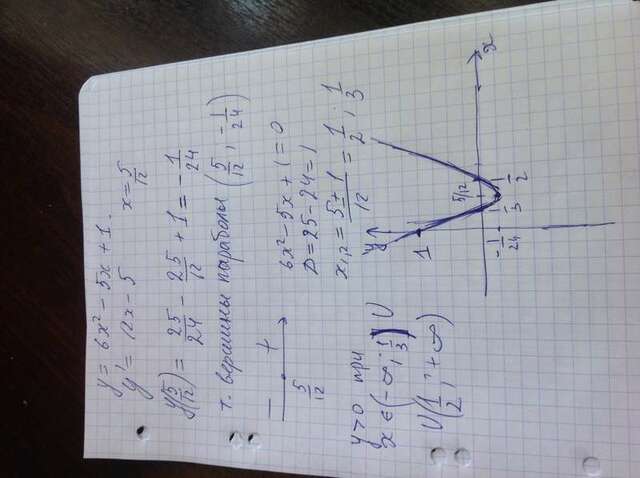 y = 6x² - 5x + 1.
y' = 12x - 5    x = 5/12
y(5/12) = 25/24 - 25/12 + 1 = -1/24
т. вершины параболы (5/12 ; -1/24)
- +
5/12
6x² - 5x + 1 = 0
D = 25 - 24 = 1
x₁,₂ = (5 ± 1)/12 = 1/2 ; 1/3
y > 0 при
x ∈ (-∞; 1/3) ∪
∪ (1/2; +∞)
y
1
5/12
x
-1/24
1/3
1/2